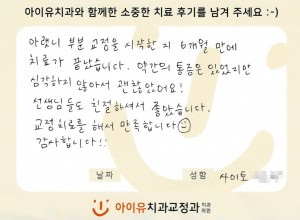 아이유치과와 함께한 소중한 치료 후기를 남겨 주세요 :-)
아랫니 부분 교정을 시작한 지 6개월 만에
치료가 끝났습니다. 약간의 통증은 있었지만
심각하지 않아서 괜찮았어요!
선생님들도 친절하셔서 좋았습니다.
교정치료를 해서 만족합니다
감사합니다!!
날짜 성함 사이토
아이유치과교정과 치과의원